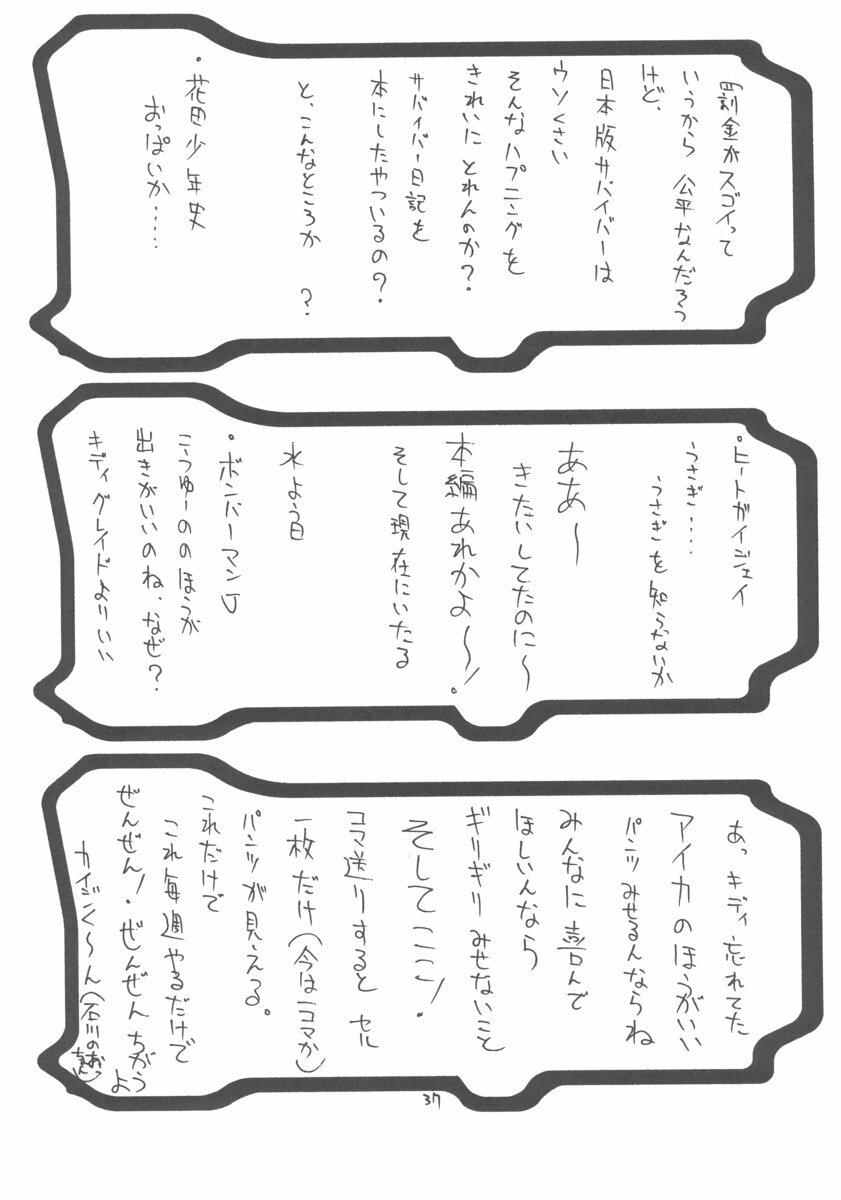 罰金がスゴイって
いうから 公平なんだろう
けど、
日本版サバイバーは
ウソくさい
そんなハプニングを
きれいに とれんのか?
サバイバー日記を
本にしたやついるの?
と、こんなところか ?
・花田少年史
おっぱいか・・・・・
・ヒートガイジェイ
うさぎ・・・・
うさぎを知らないか
ああ〜
きたいしてたのに〜
本編あれかよ〜!。
そして現在にいたる
水よう日
・ボンバーマンJ
こうゆーののほうが
出きがいいのね、なぜ?
キディグレイドよりいい
あっ キディ忘れてた
アイカのほうがいい
パンツみせるんならね
みんなに喜んで
ほしいんなら
ギリギリ みせないこと
そしてここ!
コマ送りすると セル
一枚だけ(今は一コマか)
パンツが見える。
これだけで
これ毎週やるだけで
ぜんぜん!・ぜんぜん ちがうよ
カイジンく〜ん(石川の
37